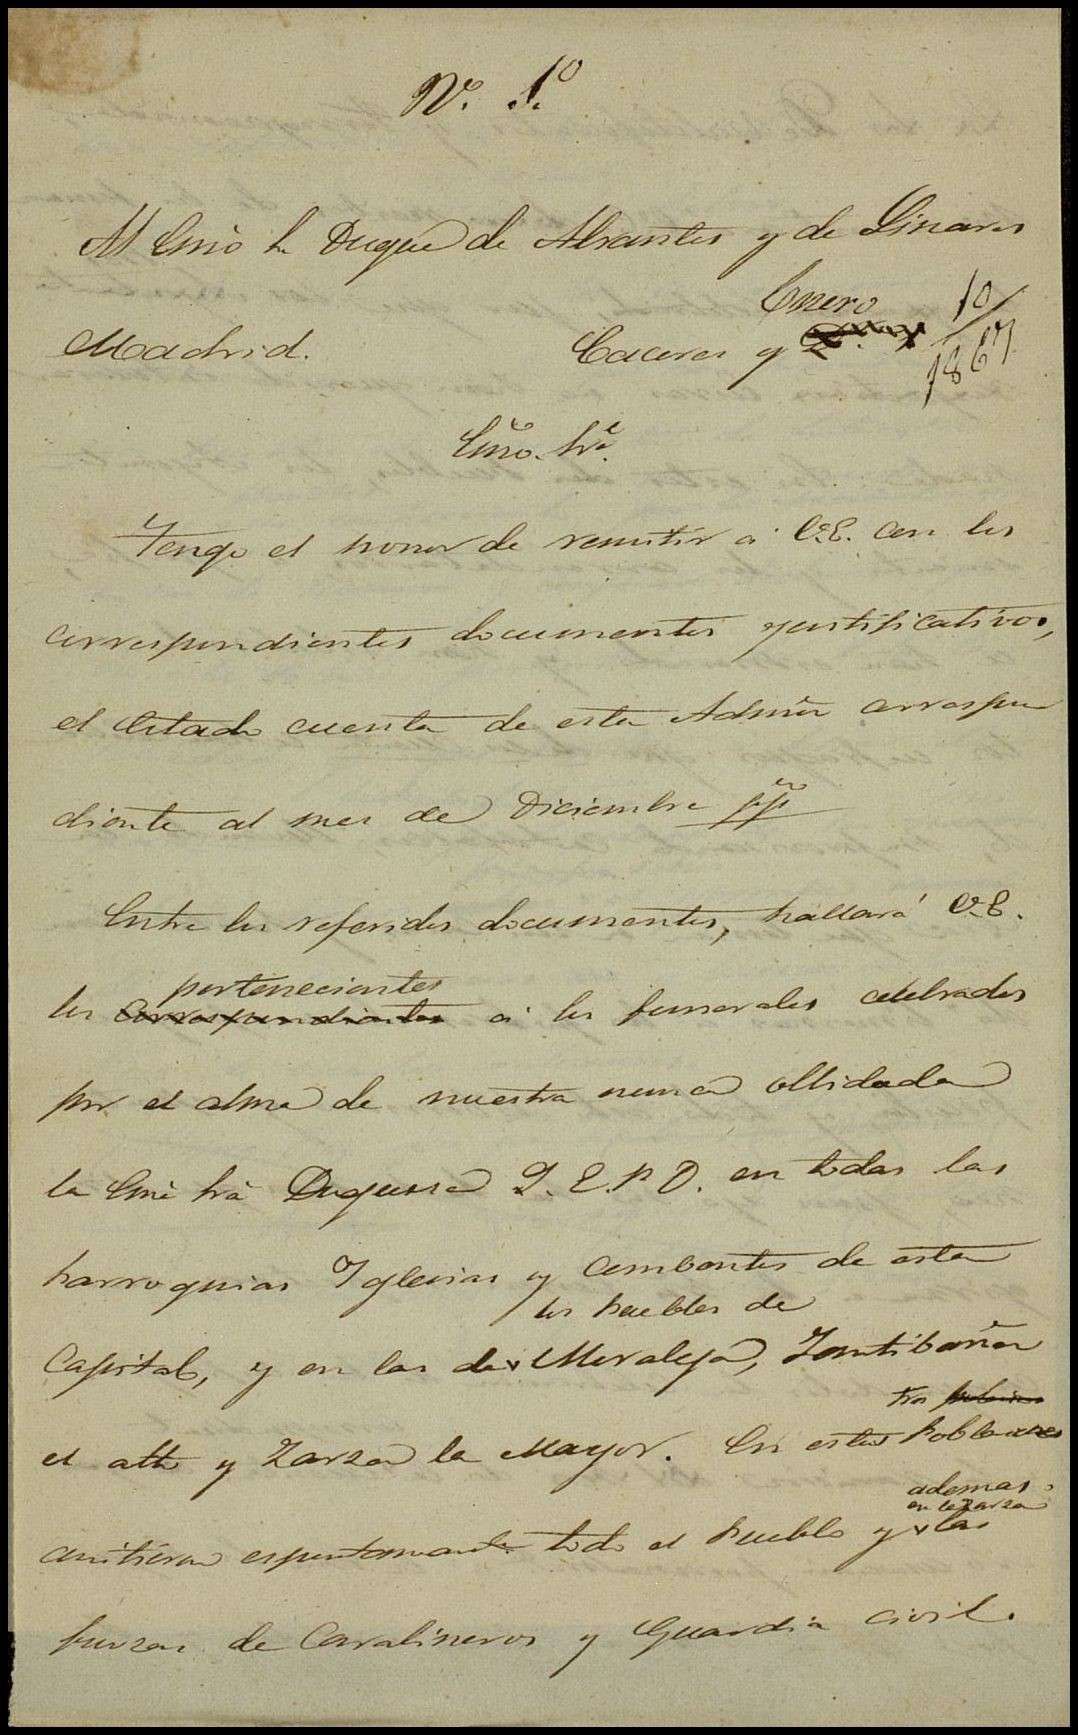 Nº. 1º
Al Exmo Sr Duque de Abrantes y de Linares
Enero 10/1867
Madrid. Caceres y
Exmo. Sr.
Tengo el honor de remitir á V.E. con los
correspondientes documentos justificativos,
el Estado cuenta de esta Admon correspon
diente al mes de Diciembre ppº
Entre los referidos documentos, hallará V.E.
pertenecientes
los correspondientes á los funerales celebrados
por el alma de nuestra nunca olbidada
la Exma Sra Duquesa Q.E.P.D. en todas las
Parroquias Yglesias y Combentos de esta
los Pueblos de
Capital, y en las de Moraleja, Zantibañez
tres
el alto y Zarza la Mayor. En estas Poblaciones
ademas
en la Zarza
asistieron espontaneamente todo el Pueblo y las
fuerzas de Carabineros y Guardia civil.